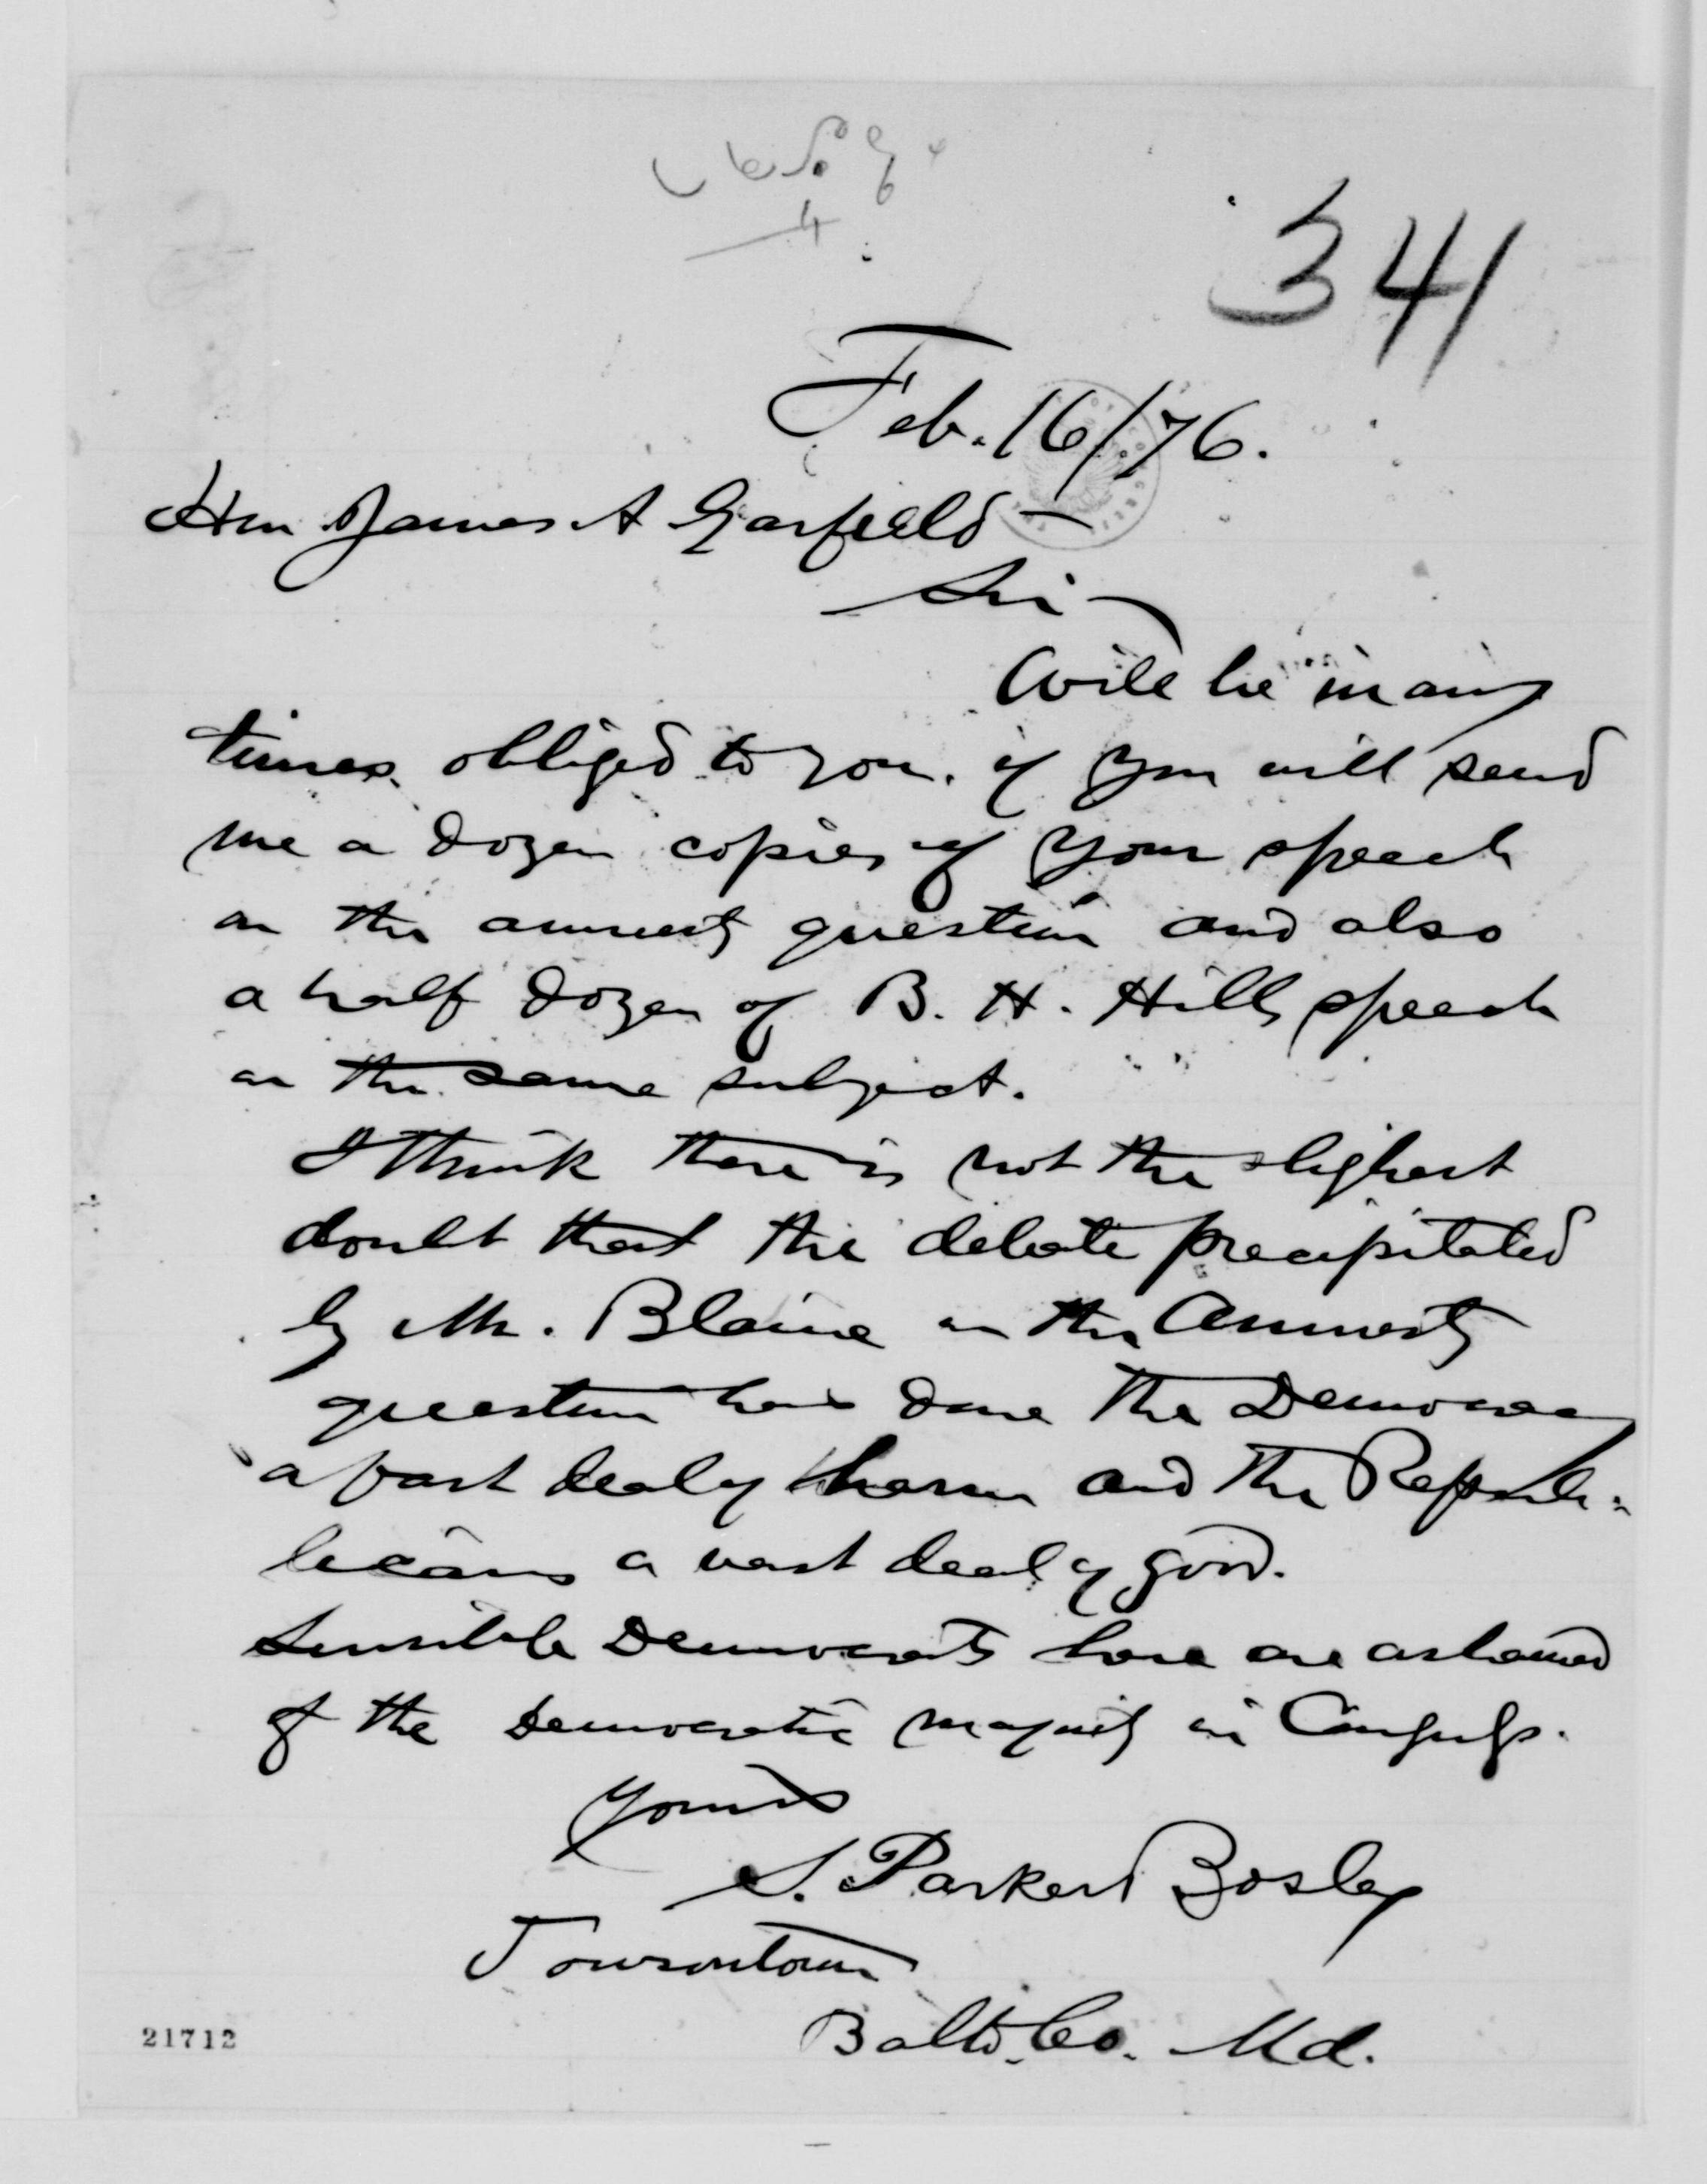 341
Feb. 16/76.
Hon James A Garfield —
Sir —
Will be many
times obliged to you. if you will send
me a dozen copies of your speech
on the amnesty question and also
a half dozen of B. H. Hills speech
on the same subject.
I think there is not the slighest
doubt that the debate precipitated
by Mr. Blaine on the Amnesty
question has done the Democracy
a vast deal of harm and the Repub-
licans a vast deal of good.
Sensible Democrats here are ashamed
of the Democratic majority in Congress.
Yours
S. Parker Bosley
Towsontown
Balto. Co. Md.
21712